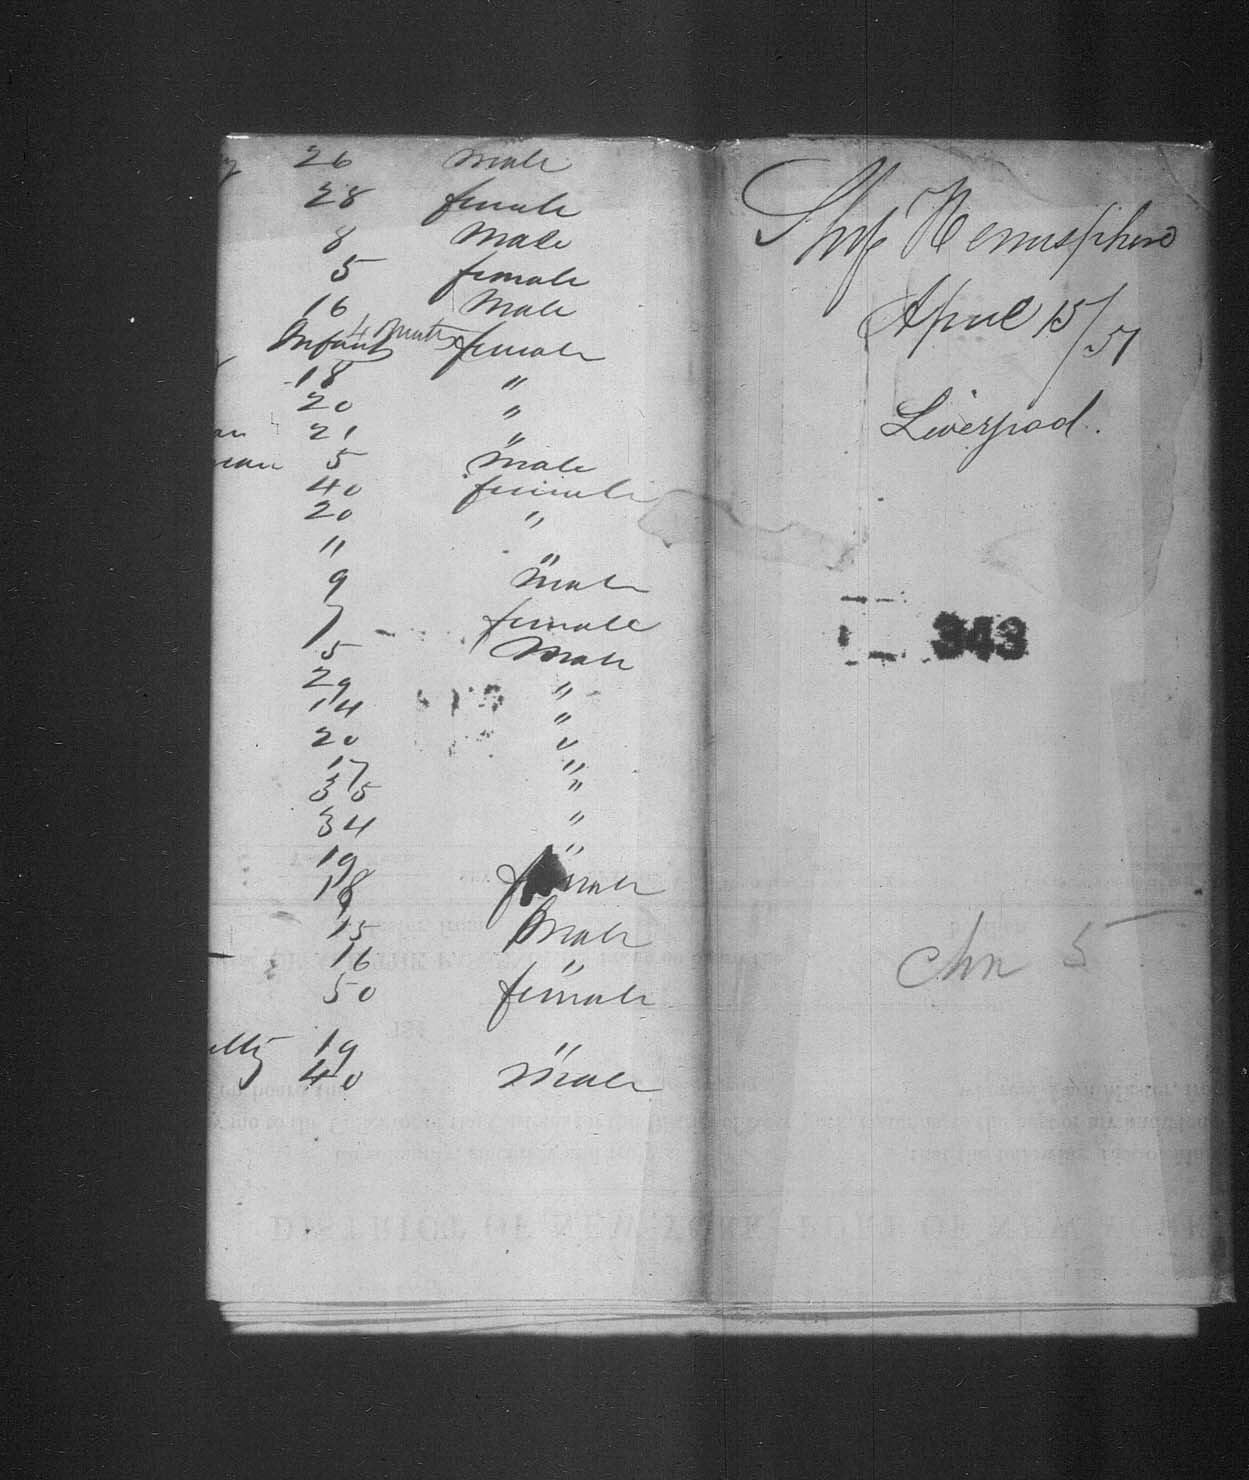 26 male
28 female
8 Male
5 female
16 Male
Infant 4 Mnths female
18 "
20 "
21 "
5 male
40 female
20 "
11 "
9 male
7 female
5 Male
29 "
14 "
20 "
17 "
35 "
34 "
19 "
18 female
15 Male
16 "
50 female
19 "
40 male
Ship Hemisphere
April 15/51
Liverpool.
343
5
DISTRICT OF NEW-YORK—PORT OF NEW YORK